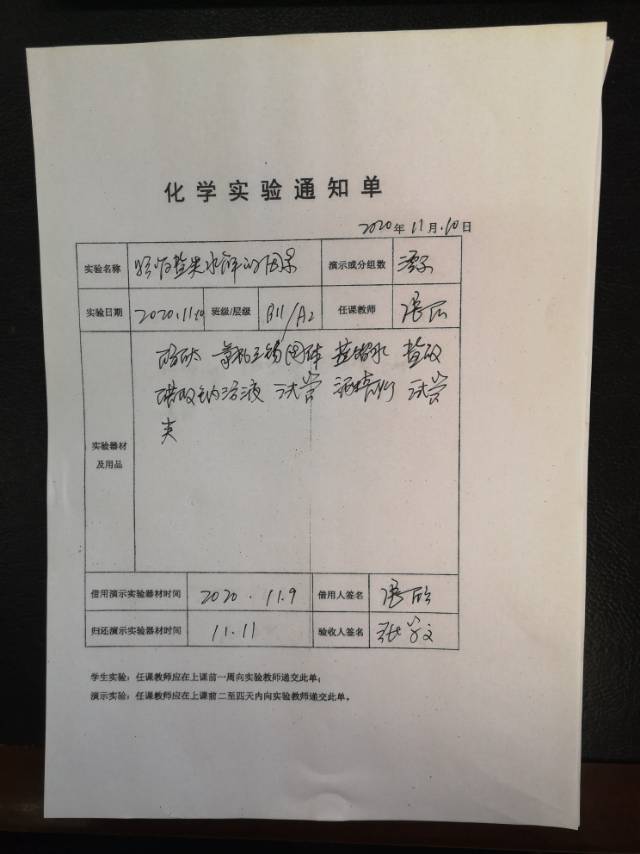 化学实验通知单
2020年11月10日
实验名称 影响盐类水解的因素 演示或分组数 演示
实验日期 2020.11.10 班级/层级 B11/A2 任课教师
固体 蒸馏水 盐酸
溶液 试管 酒精灯 试管
夹
实验器材
及用品
借用演示实验器材时间 2020.11.9 借用人签名
归还演示实验器材时间 11.11 验收人签名
学生实验:任课教师应在上课前一周向实验教师递交此单;
演示实验:任课教师应在上课前二至四天内向实验教师递交此单。